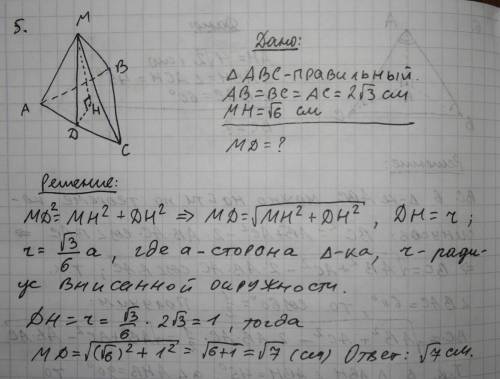 5.
M
B
A
H
D
C
Дано:
△ABC - правильный.
AB = BC = AC = 2√3 см
MH = √6 см
MD = ?
Решение:
MD² = MH² + DH² ⇒ MD = √(MH² + DH²), DH = r;
r = √3/6 a, где a - сторона Δ-ка, r - ради-
ус вписанной окружности.
DH = r = √3/6 · 2√3 = 1, тогда
MD = √((√6)² + 1²) = √(6+1) = √7 (см) Ответ: √7 см.